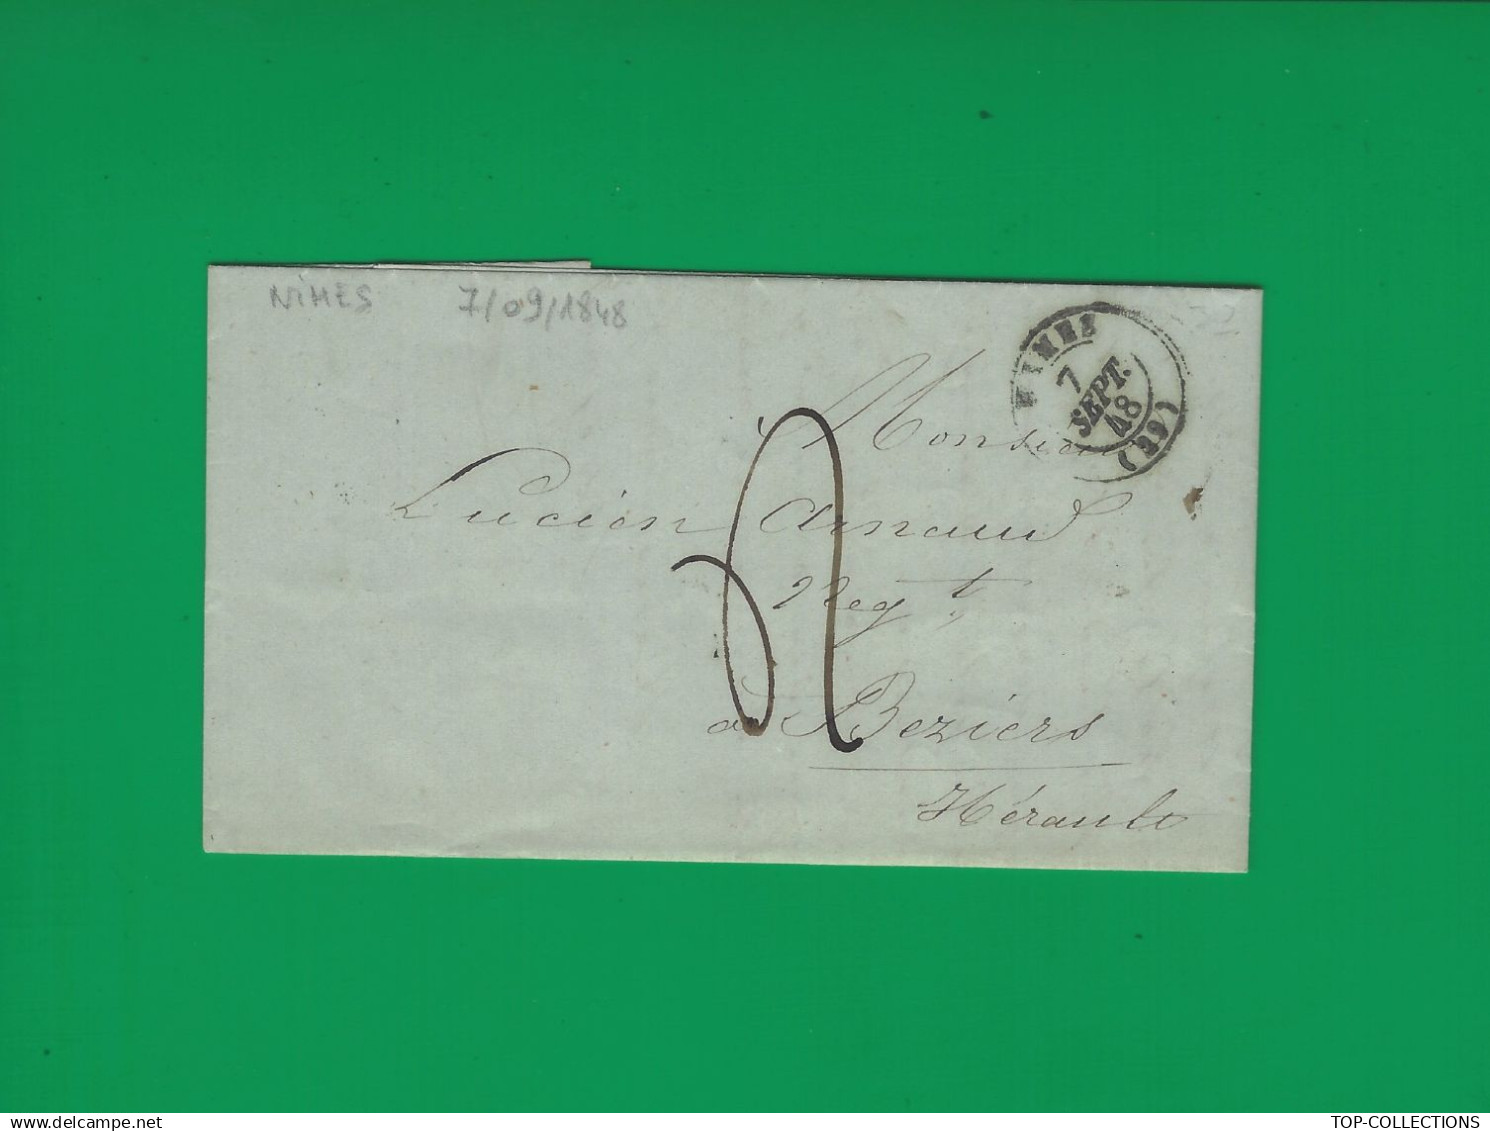 NIMES 7/09/1848
NIMES
7
SEPT.
48
(29)
Monsieur
Lucien Arnaud
Neg t.
à Beziers
Hérault
TOP-COLLECTIONS